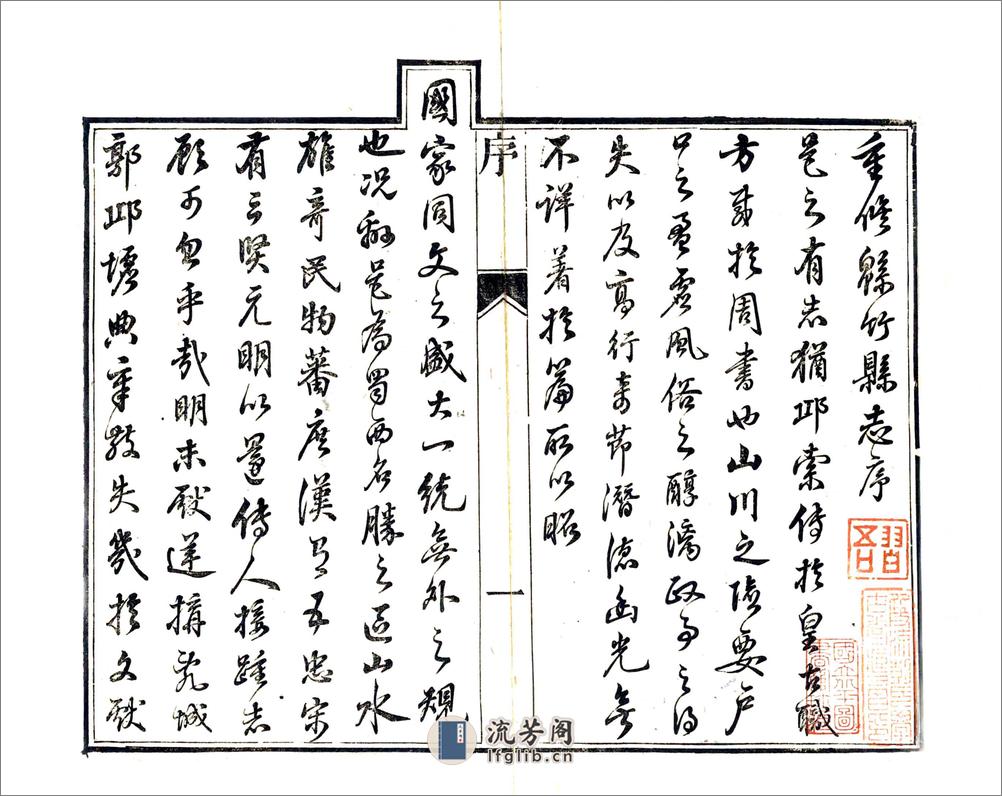 重修綿竹縣志序
邑之有志猶邱索傳於皇古職
方載於周書也山川之險要戶
口之盈虛風俗之醇漓政事之得
失以及高行奇節潛德幽光無
不詳著於篇所以昭
序
一
國家同文之盛大一統無外之規
也況綿邑為蜀西名勝之區山水
雄奇民物蕃庶漢有五忠宋
有三賢元明以還傳人接踵志
顧可忽乎哉明末厭遘搆荒城
郭邱墟典章散失幾於文獻
流芳阁
lfglib.cn